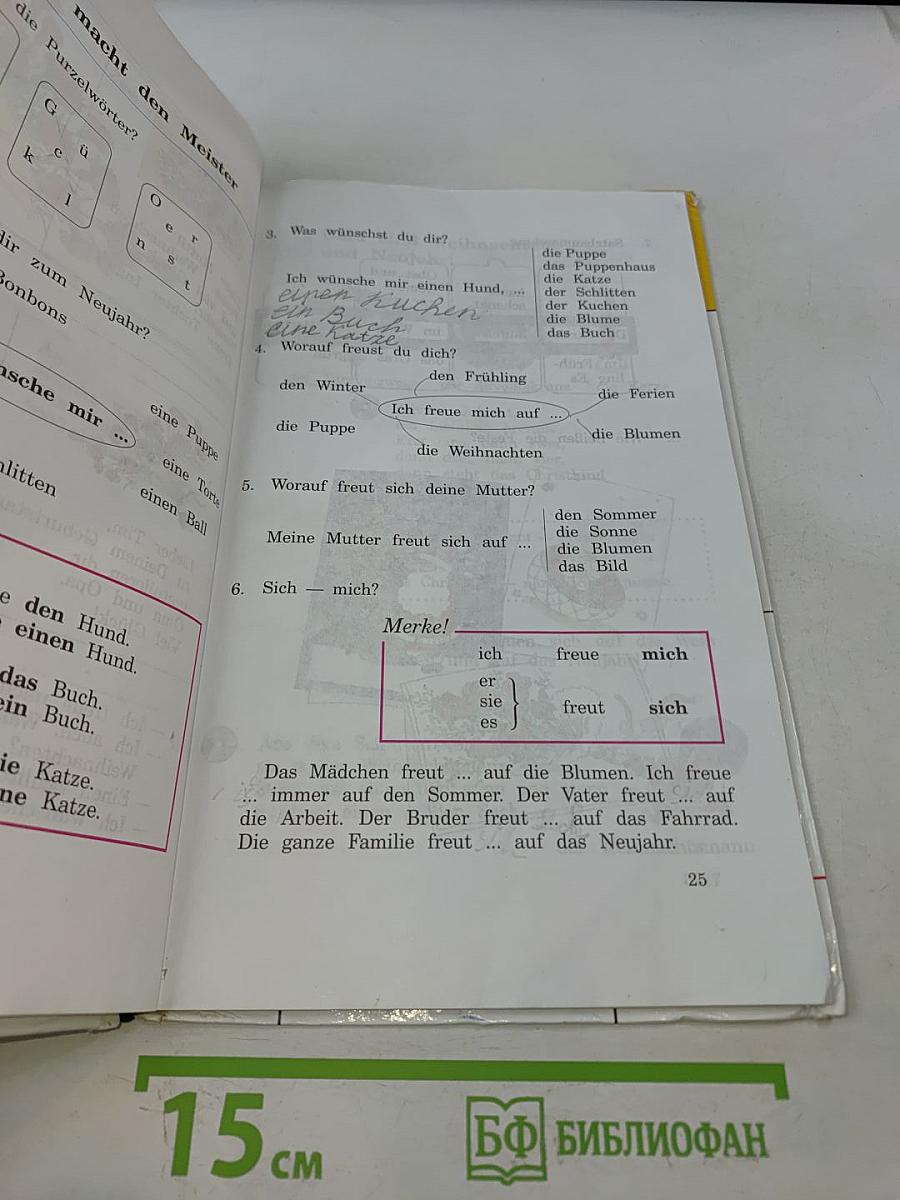 macht den Meister
die Purzelwörter?
G
ü
c
k
l
O
e r
n s
t
dir zum Neujahr?
Bonbons
nsche mir ...
eine Puppe
eine Torte
hlitten
einen Ball
e den Hund.
einen Hund.
das Buch.
ein Buch.
ie Katze.
ne Katze.
3. Was wünschst du dir?
Ich wünsche mir einen Hund, ...
einen Kuchen
ein Buch
eine Katze
die Puppe
das Puppenhaus
die Katze
der Schlitten
der Kuchen
die Blume
das Buch
4. Worauf freust du dich?
den Winter
den Frühling
die Ferien
Ich freue mich auf ...
die Puppe
die Blumen
die Weihnachten
5. Worauf freut sich deine Mutter?
Meine Mutter freut sich auf ...
den Sommer
die Sonne
die Blumen
das Bild
6. Sich — mich?
Merke!
ich freue mich
er
sie freut sich
es
Das Mädchen freut ... auf die Blumen. Ich freue
... immer auf den Sommer. Der Vater freut ... auf
die Arbeit. Der Bruder freut ... auf das Fahrrad.
Die ganze Familie freut ... auf das Neujahr.
25
15 см
БФ БИБЛИОФАН